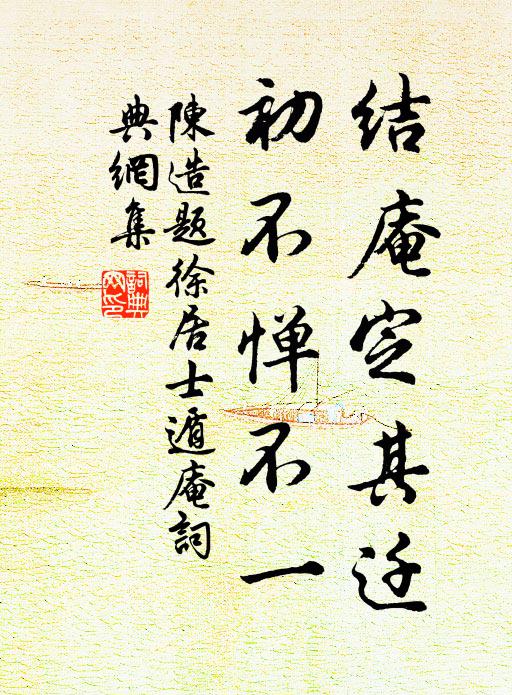 結庵定其迁
初不惮不一
陳造題徐居士遁庵詞
典網集
詞典
网印